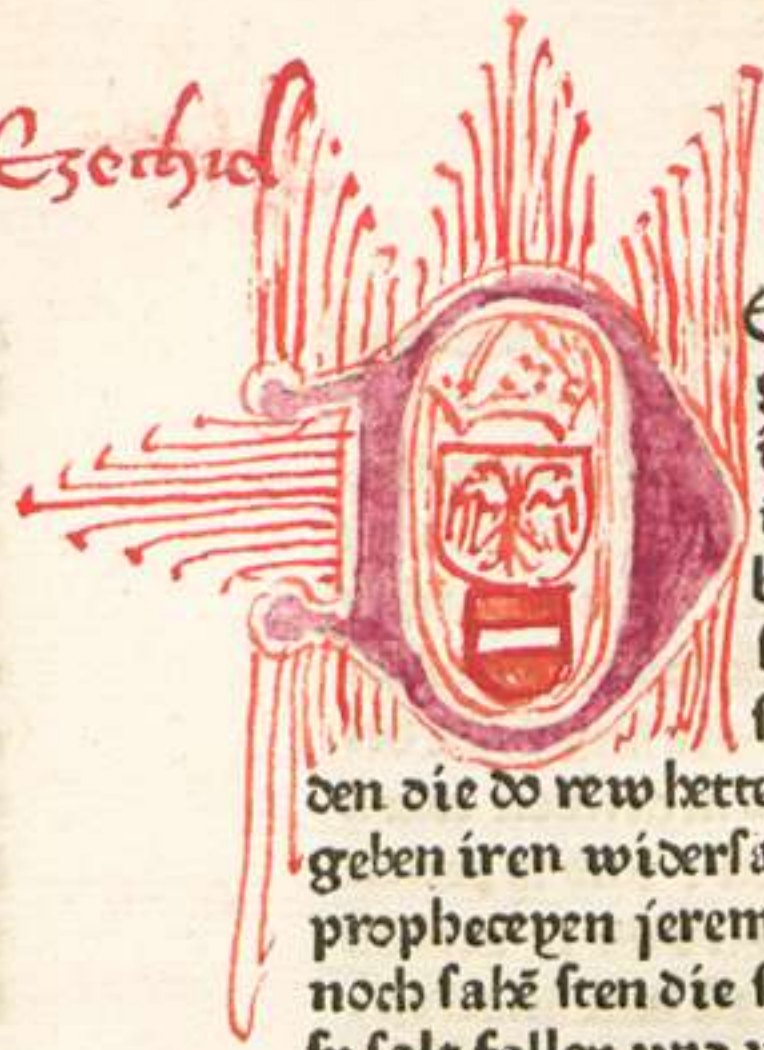 Ezechiel
D
den die do rew hett
geben iren widersa
propheceyen jerem
noch sahē sten die